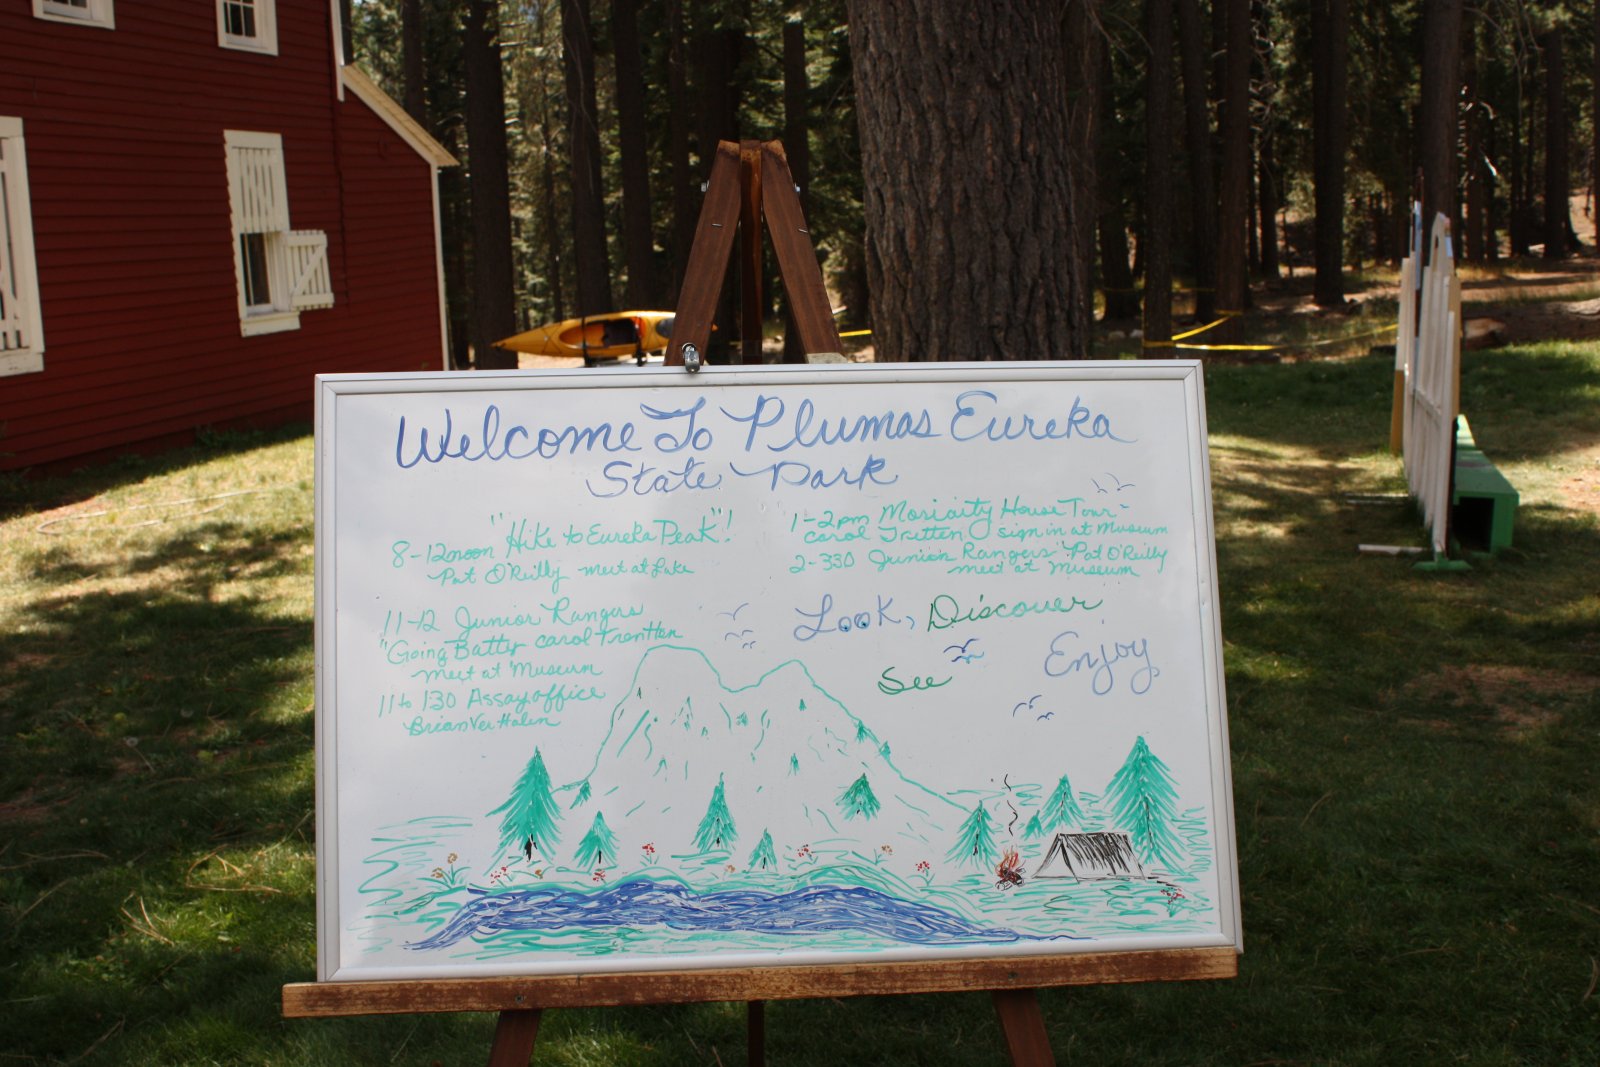 Welcome To Plumas Eureka
State Park
"Hike to Eureka Peak"!
8-12noon
Pat O'Reilly meet at Lake
11-12 Junior Rangers
"Going Batty carol Trentten
meet at Museum
11 to 130 Assay office
Brian Ver Halen
1-2pm Moriaity House Tour-
carol Tretten sign in at Museum
2-330 Junior Rangers Pat O'Reilly
meet at Museum
Look, Discover
See Enjoy